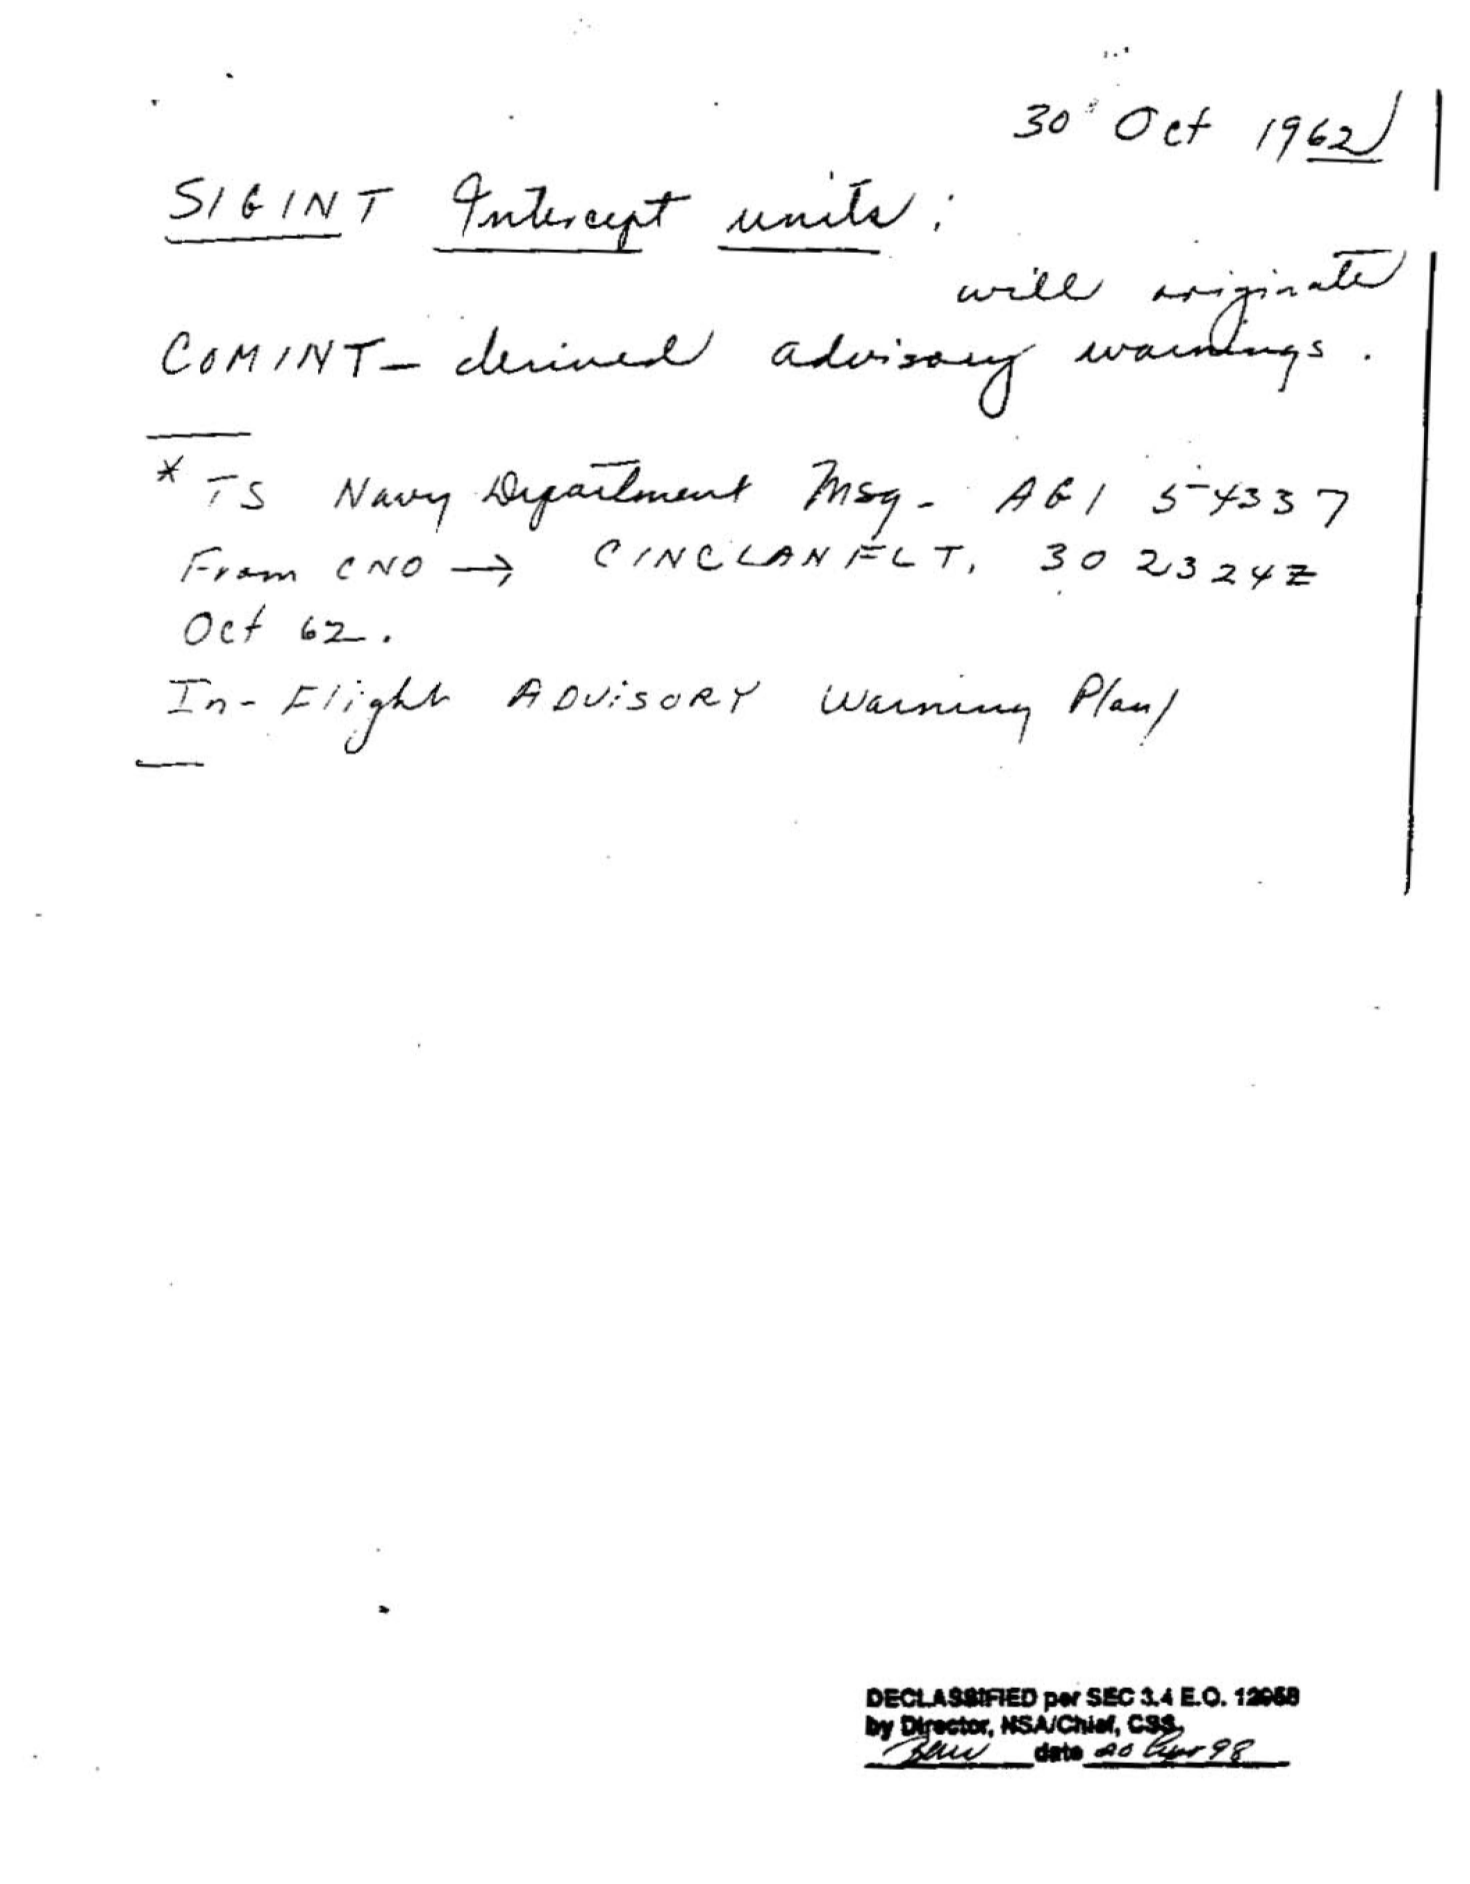 30 Oct 1962
SIGINT Intercept units:
will originate
COMINT- derived advisory warnings.
* TS Navy Department Msg- AGI 54337
From CNO → CINCLANFLT, 302324Z
Oct 62.
In-Flight ADVISORY Warning Plan/
DECLASSIFIED per SEC 3.4 E.O. 12958
by Director, NSA/Chief, CSS,
date 20 Apr 98